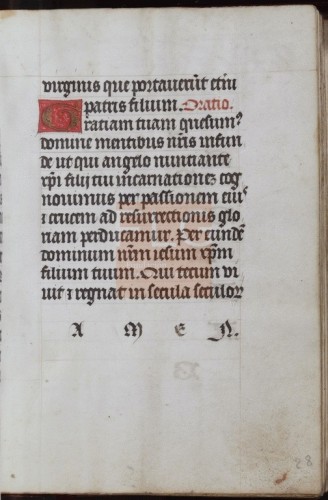 virginis que portaverūt etn̄i
patris filium. Oratio.
Gratiam tuam quesumꝰ
domine mentibus nr̄is infun
de ut qui angelo nunciante
xp̄i filij tui incarnationeʒ cog
novimus per passionem eiuˢ
⁊ crucem ad resurrectionis glo
riam perducamur. Per eundē
dominum nr̄m iesum xp̄m
filium tuum. Qui tecum vi
vit ⁊ regnat in secula seculoꝝ
A M E N.
28